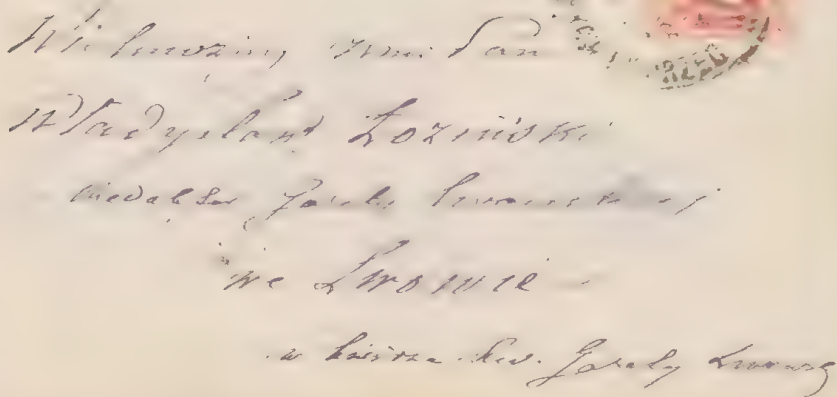 Wielmożny Jmć Pan
Władysław Łoziński
Redaktor Gazety Lwowskiej
we Lwowie
w biórze Red. Gazety Lwowsk